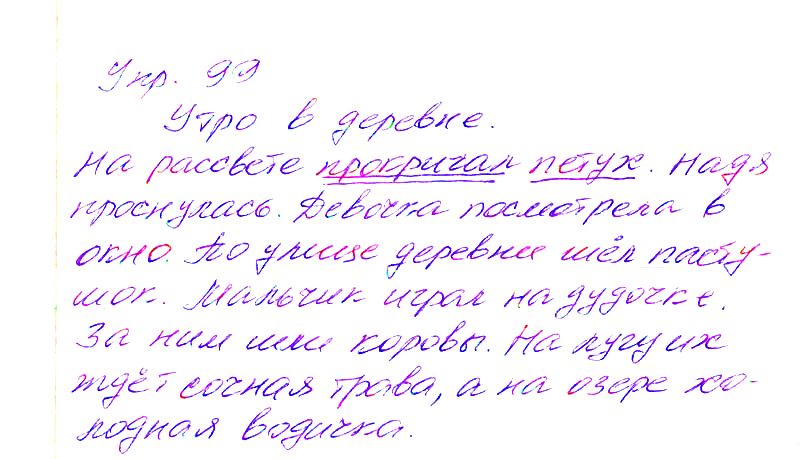 Упр. 99
Утро в деревне.
На рассвете прокричал петух. Надя
проснулась. Девочка посмотрела в
окно. По улице деревни шёл пасту-
шок. Мальчик играл на дудочке.
За ним шли коровы. На лугу их
ждёт сочная трава, а на озере хо-
лодная водичка.